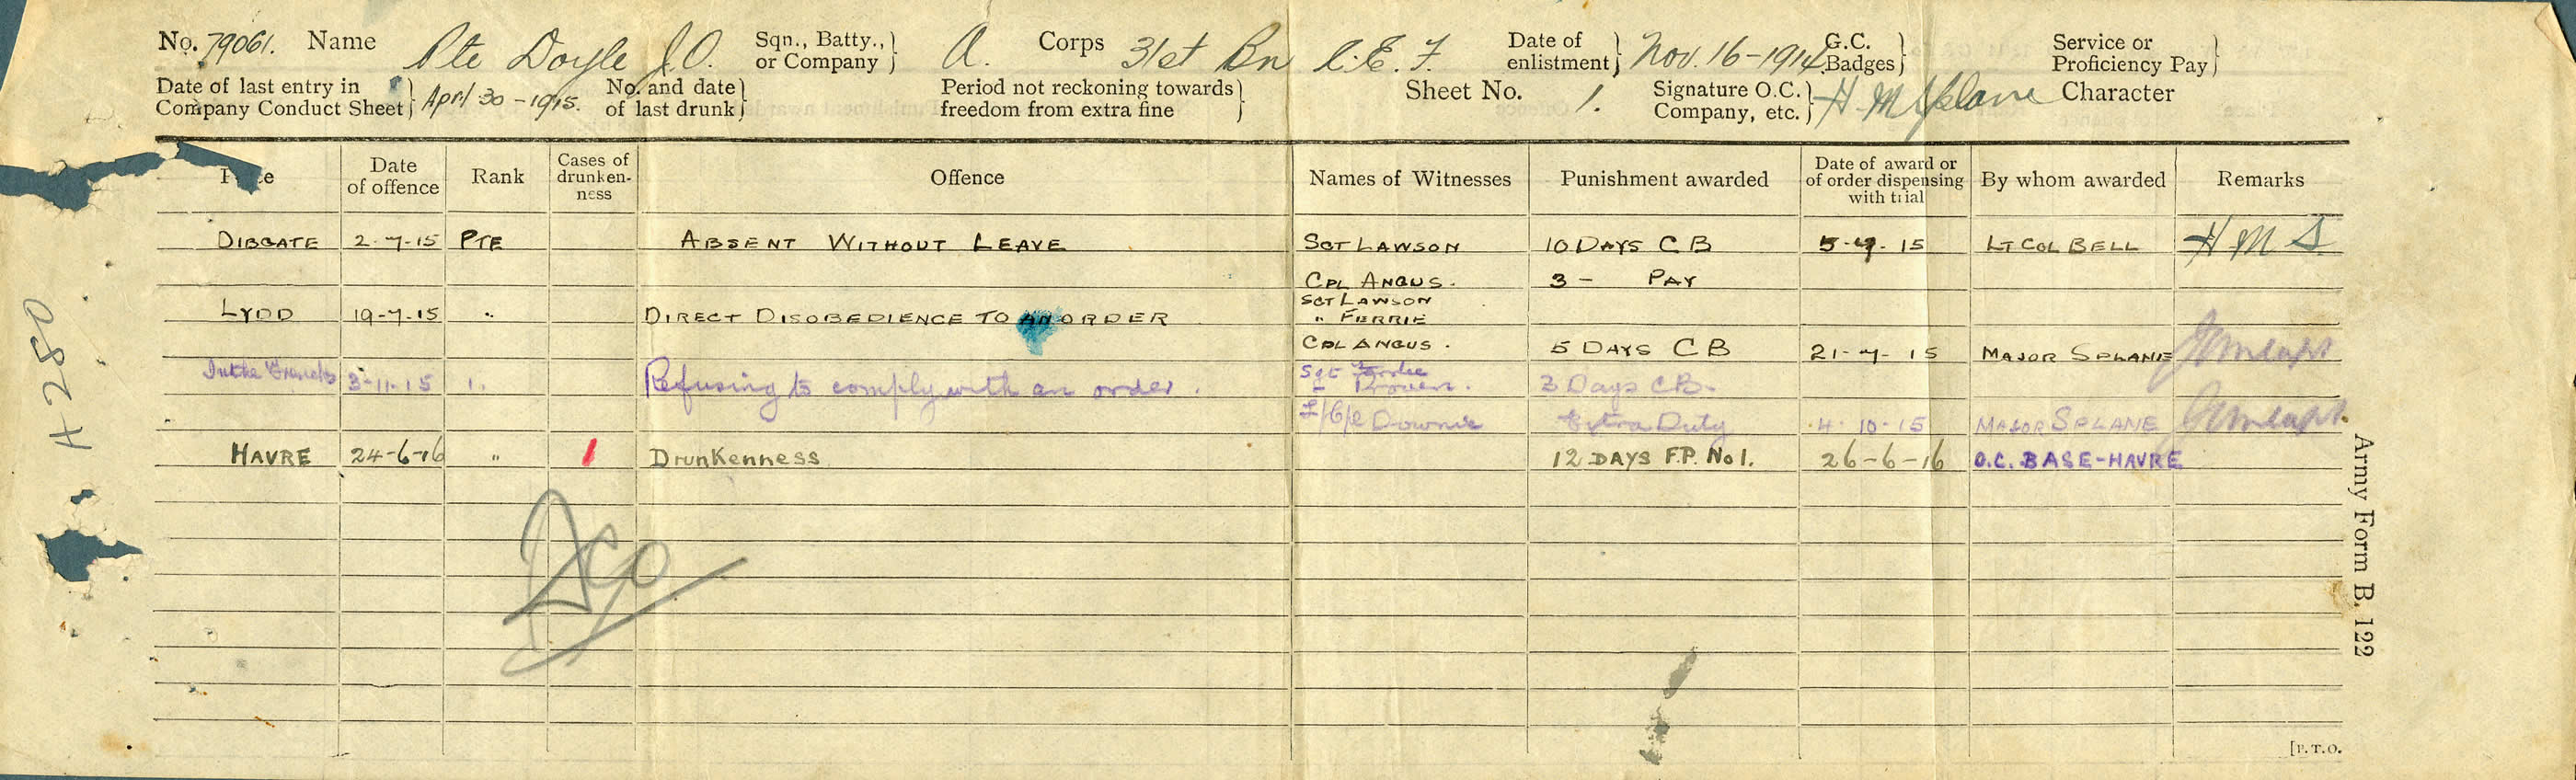 No. 79061. Name Pte Doyle J.O. Sqn., Batty., or Company A. Corps 31st Bn C.E.F. Date of enlistment Nov. 16-1914 G.C. Badges Service or Proficiency Pay
Date of last entry in Company Conduct Sheet April 30-1915. No. and date of last drunk Period not reckoning towards freedom from extra fine Sheet No. 1. Signature O.C. Company, etc. H M Splane Character
Date of offence Rank Cases of drunken-ness Offence Names of Witnesses Punishment awarded Date of award or of order dispensing with trial By whom awarded Remarks
DIBGATE 2-7-15 PTE ABSENT WITHOUT LEAVE SGT LAWSON 10 DAYS C B 5-7-15 LT COL BELL H M S
CPL ANGUS. 3 - PAY
SGT LAWSON
LYDD 19-7-15 " DIRECT DISOBEDIENCE TO AN ORDER " FERRIE
CPL ANGUS. 5 DAYS C B 21-7-15 MAJOR SPLANE
In the Trenches 3-11-15 " Refusing to comply with an order. Sgt
3 Days CB.
L/Cpl Downie Extra Duty 4-10-15 MAJOR SPLANE
HAVRE 24-6-16 " 1 Drunkenness 12 DAYS F.P. No 1. 26-6-16 O.C. BASE-HAVRE
A 280
Army Form B. 122
[P.T.O.